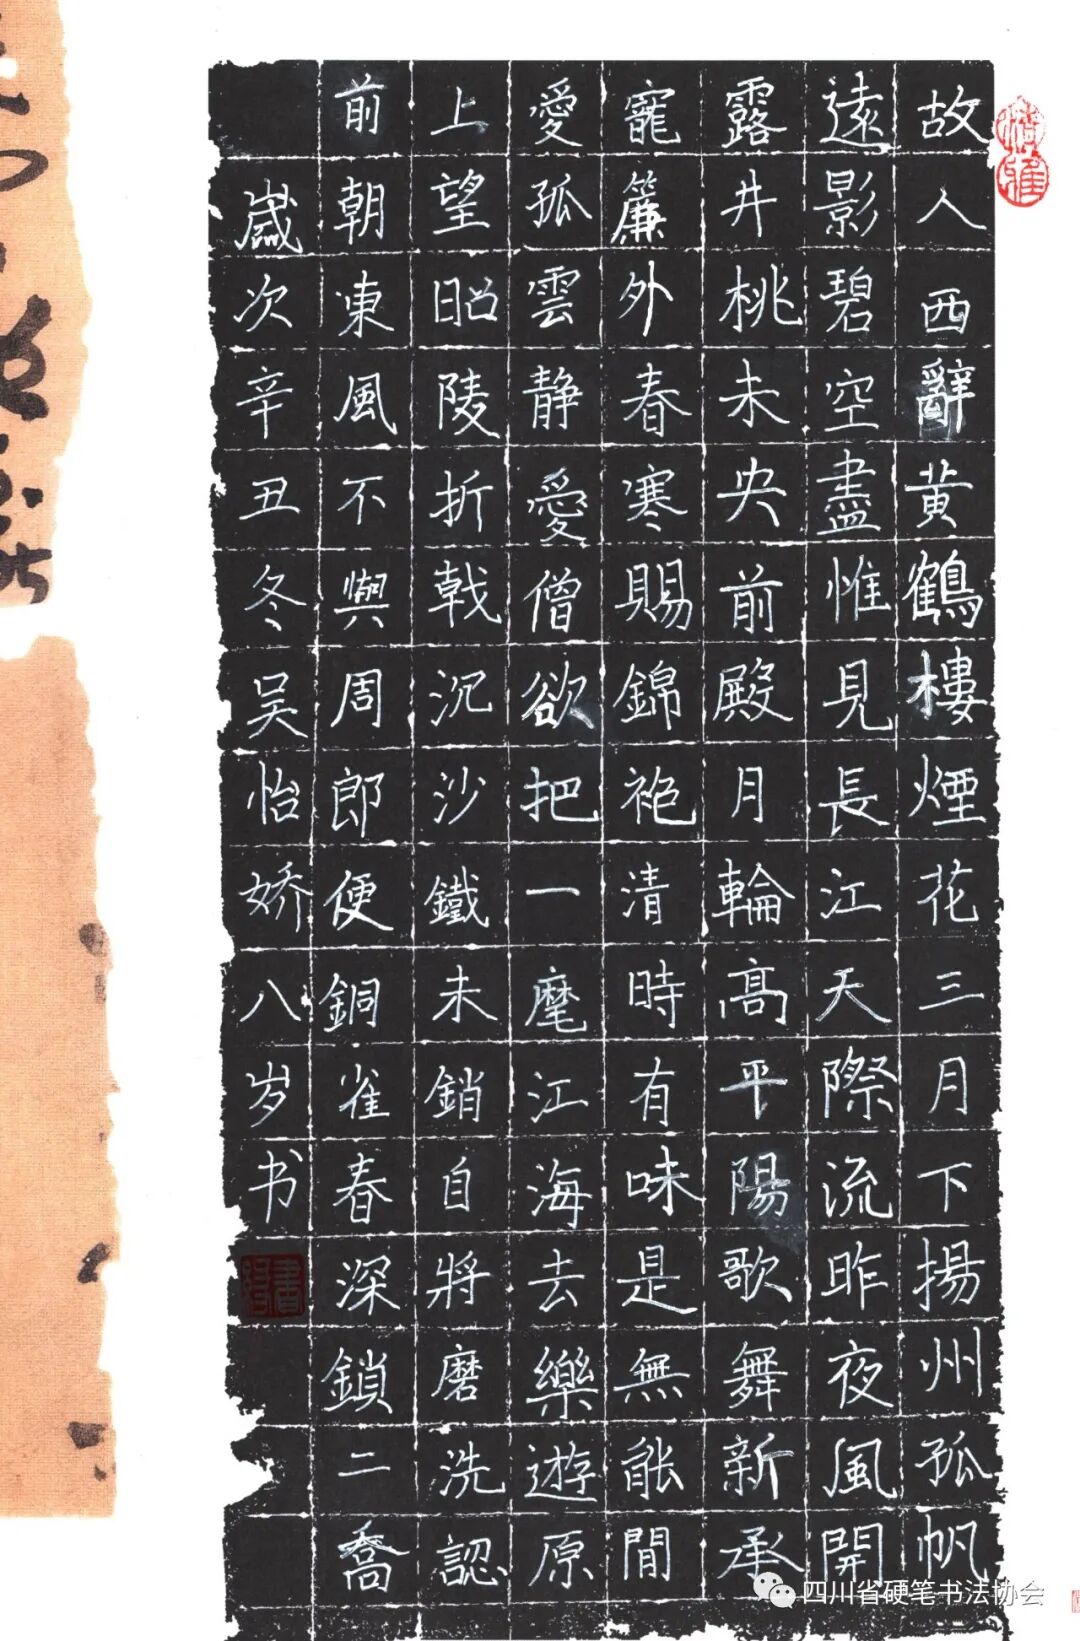 故人西辭黄鶴樓煙花三月下揚州孤帆
遠影碧空盡惟見長江天際流昨夜風開
露井桃未央前殿月輪高平陽歌舞新承
寵簾外春寒賜錦袍清時有味是無能閒
愛孤雲静愛僧欲把一麾江海去樂遊原
上望昭陵折戟沉沙鐵未銷自將磨洗認
前朝東風不與周郎便銅雀春深鎖二喬
歲次辛丑冬吴怡娇八岁书
四川省硬笔书法协会